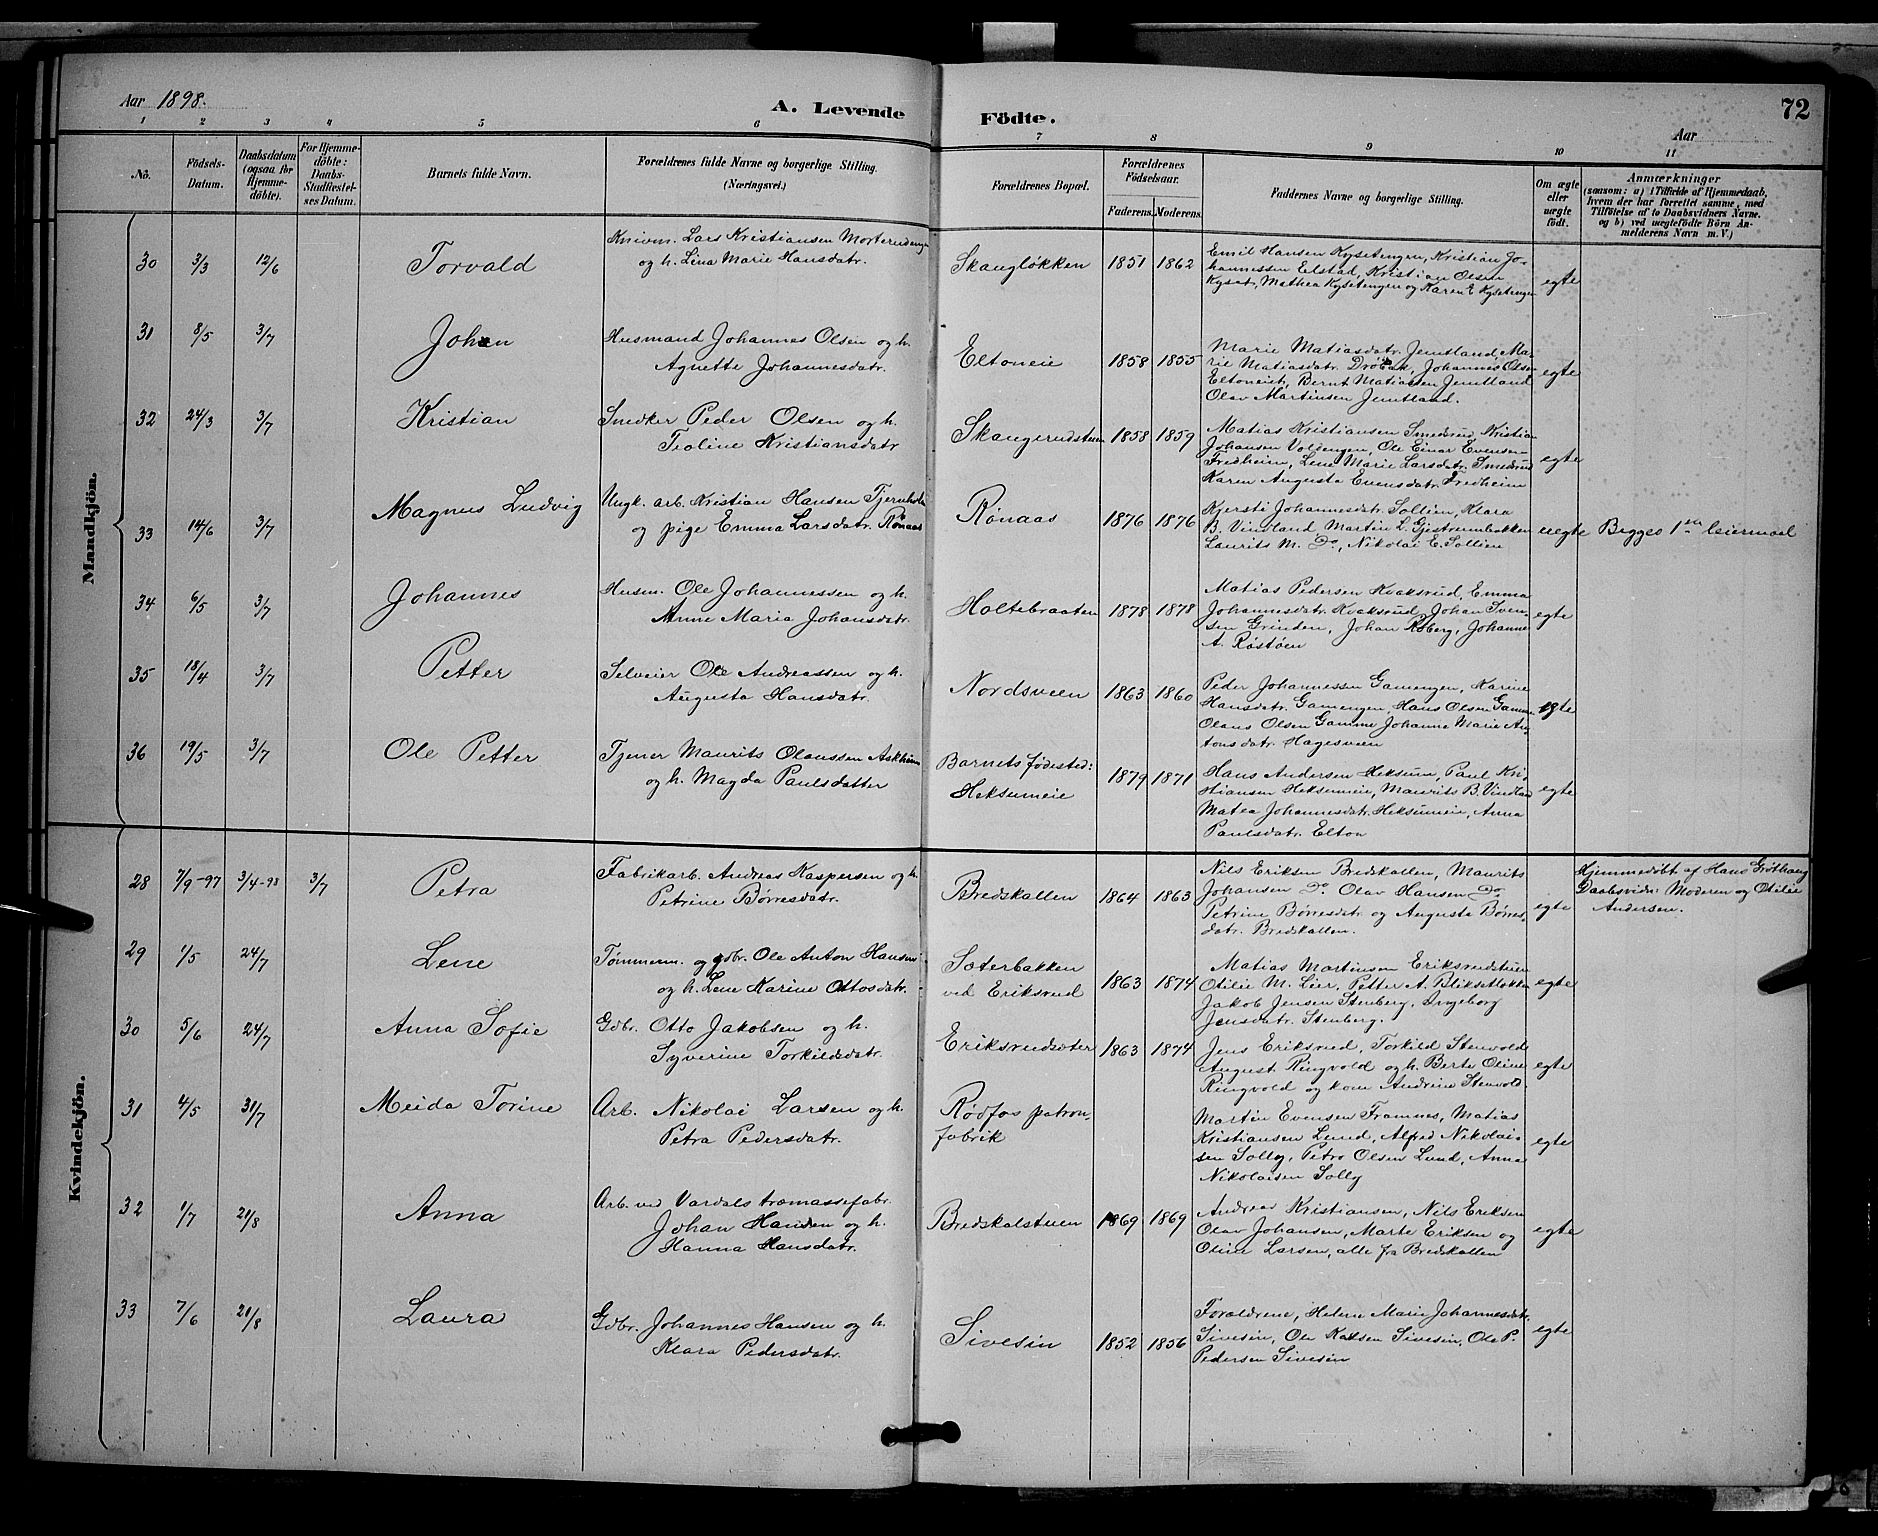 Aar 1898.
A. Levende Födte.
72
Aar
1 2 3 4 5 6 7 8 9 10 11
No.
Födsels-Datum.
Daabsdatum (ogsaa for Hjemme-döbte).
For Hjemme-döbte: Daabs-Stadfæstel-ses Datum.
Barnets fulde Navn.
Forældrenes fulde Navne og borgerlige Stilling.
(Næringsvei.)
Forældrenes Bopæl.
Forældrenes Födselsaar.
Faderens. Moderens.
Faddernes Navne og borgerlige Stilling.
Om ægte eller uægte födt.
Anmærkninger
(saasom: a) i Tilfælde af Hjemmedaab, hvem der har forrettet samme, med Tilföielse af to Daabsvidners Navne. og b) ved uægtefödte Börn An-melderens Navn m. V.)
Mandkjön.
30 3/3 12/6 Torvald
Knivm. Lars Kristiansen Morterudengen
og h. Lina Marie Hansdatr.
Skaugløkken 1851 1862
Emil Hansen Kysetengen, Kristian Jo-
hannessen Elstad, Kristian Olsen
Kyset, Mathea Kysetengen og Karen E. Kysetengen
egte
31 8/5 3/7 Johan
Husmand Johannes Olsen og h.
Agnette Johannesdatr.
Eltoneie 1858 1855
Marie Matiasdatr. Jemtland, Ma-
rie Matiasdatr. Drøbak, Johannes Olsen
Eltoneiet, Bernt Matiasen Jemtland
Olav Martinsen Jemtland.
egte
32 24/3 3/7 Kristian
Snedker Peder Olsen og h.
Tioline Kristiansdatr
Skaugerudstuen 1858 1859
Matias Kristiansen Smedsrud, Kristian
Johansen Volsengen, Ole Einar Evensen
Fredheim, Lene Marie Larsdatr. Smedsrud
Karen Augusta Evensdatr. Fredheim
egte
33 14/6 3/7 Magnus Ludvig
Ungk. arb. Kristian Hansen Tjernholm
og pige Emma Larsdatr. Rønaas
Rønaas 1876 1876
Kjersti Johannesdatr. Sollien, Klara
B. Vindland, Martin L. Gjestrumbakken
Laurits M. Do., Nikolai E. Sollien
uegte Begges 1ste leiermaal
34 6/5 3/7 Johannes
Husm. Ole Johannessen og h.
Anne Maria Johansdatr.
Holtebraaten 1878 1878
Matias Pedersen Kvaksrud, Emma
Johannesdatr. Kvaksrud, Johan Iven-
sen Grinden, Johan Roberg, Johanne
A. Røstøen
egte
35 18/4 3/7 Petter
Selveier Ole Andreassen og h.
Augusta Hansdatr.
Nordsveen 1863 1860
Peder Johannessen Gamengen, Karine
Hansdatr. Gamengen, Hans Olsen Gamme
Olaus Olsen Gamme Johanne Marie An-
tonsdatr. Hagesveen
egte
36 19/5 3/7 Ole Petter
Tjener Maurits Olaussen Askheim
og h. Magda Paulsdatter
Barnets fødested:
Heksumeie 1879 1871
Hans Andersen Heksum, Paul Kri-
stiansen Heksumeie, Maurits B. Vindland
Matea Johannesdatr. Heksumeie, Anna
Paulsdatr. Elton
egte
Kvindekjön.
28 7/9-97 3/4-98 3/7 Petra
Fabrikarb. Andreas Kaspersen og h.
Petrine Børresdatr.
Bredskallen 1864 1863
Nils Eriksen Bredskallen, Maurits
Johansen Do. Olav Hansen Do
Petrine Børresdatr. og Augusta Børres-
datr. Bredskallen.
egte
Hjemmedøbt af Hans Grøthaug
Daabsvidn: Moderen og Otilie
Andersen.
29 1/5 24/7 Lene
Tømmerm. og gdbr. Ole Anton Hansen
og h. Lene Karine Ottosdatr.
Sæterbakken
ved Eriksrud 1863 1874
Matias Martinsen Eriksrudstuen
Otilie M. Lier, Petter A. Blikseth­løkken
Jakob Jensen Stenberg, Ingeborg
Jensdatr. Stenberg.
egte
30 5/6 24/7 Anna Sofie
Gdbr. Otto Jakobsen og h.
Syverine Torkildsdatr.
Eriksrudsæter 1863 1874
Jens Eriksrud, Torkild Stenvold
August Ringvold og h. Berte Oline
Ringvold og kone Andrine Stenvold.
egte
31 4/5 31/7 Meida Torine
Arb. Nikolai Larsen og h.
Petra Pedersdatr.
Rødfos patron-
fabrik
Martin Evensen Framnes, Matias
Kristiansen Lund, Alfred Nikolai-
sen Solby, Petra Olsen Lund, Anna
Nikolaisen Solby
egte
32 1/7 21/8 Anna
Arb. ved Vardals træmassefabr.
Johan Hansen og h.
Hanna Hansdatr.
Bredskalstuen 1869 1869
Andreas Kristiansen, Nils Eriksen
Olav Johansen, Marte Eriksen og
Oline Larsen, alle fra Bredskallen
egte
33 7/6 21/8 Laura
Gdbr. Johannes Hansen og h.
Klara Pedersdatr.
Sivesin 1852 1856
Forældrene, Helene Marie Johannesdatr.
Sivesin, Ole Karlsen Sivesin, Ole P.
Pedersen Sivesin
egte